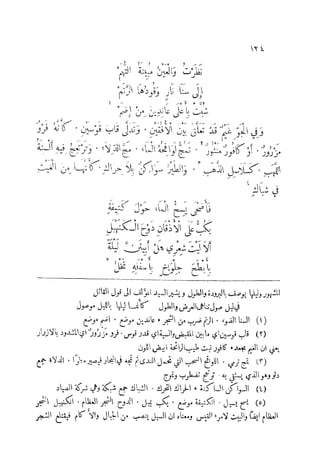 ١٢٤
نَظَرْتُ وَالْعَيْنُ مُبِينَةُ التُّهَمْ
إِلَى سَنَا نَارٍ وَقُودُهَا الرَّتَمْ
شُبَّتْ بِأَعْلَى عَانِدَيْنِ مِنْ إِضَمْ
وَفِي الْجَوِّ غَيْمٌ قَدْ تَعَلَّى بَيْنَ الْأُفُقَيْنِ وَتَدَلَّى قَابَ قَوْسَيْنِ كَأَنَّهُ فَرْوٌ
مَزْرُورٌ أَوْ كَافُورٌ مَنْثُورٌ
كَسَلَاسِلِ الذَّهَبِ وَالطَّيْرُ سَوَاكِنُ بِلَا حَرَاكٍ كَأَنَّهَا مِنَ الْغَيْثِ
فِي شِبَاكٍ
فَأَضْحَى يَسُحُّ الْمَاءَ حَوْلَ كُتَيْفَةٍ
يَكُبُّ عَلَى الْأَذْقَانِ دَوْحَ الْكَنَهْبَلِ
أَلَا لَيْتَ شِعْرِي هَلْ أَبِيتَنَّ لَيْلَةً
بِأَبْطَحَ جِلْوَاخٍ بِأَسْفَلِهِ نَخْلُ
المشهور وليلها يوصف بالبرودة والطول ويشير السيد المؤلف الى قول القائل
فى ليل صول تناهى العرض والطول كأنما ليلها بالليل موصول
(١) السنا الضوء . الرتم ضرب من الشجر . عاندين موضع . اضم موضع
(٢) قاب قوسين اي مابين المقبض والسية اي قدر قوس . فرو مزرور اي مشدود بالازرار
يعنى ان الغيم كافور نبت طيب الرائحة ابيض اللون
(٣) اللوائح السحب التى تحمل الندى ثم تمجه فى البحار فيصير . الدلاء جمع
دلو وهو الذي يستقى به . ترتعج تضطرب وتموج
(٤) السواكن الساكنة . الحراك التحرك . الشباك جمع شبكة وهى شركة الصياد
(٥) يسح يسيل . الكتيفة موضع . يكب يميل . الدوح الشجر العظام . الكنهبل الشجر
العظام ايضاً والبيت لامرئ القيس ومعناه ان السيل ينصب من الجبال والآكام فيقتلع الشجر